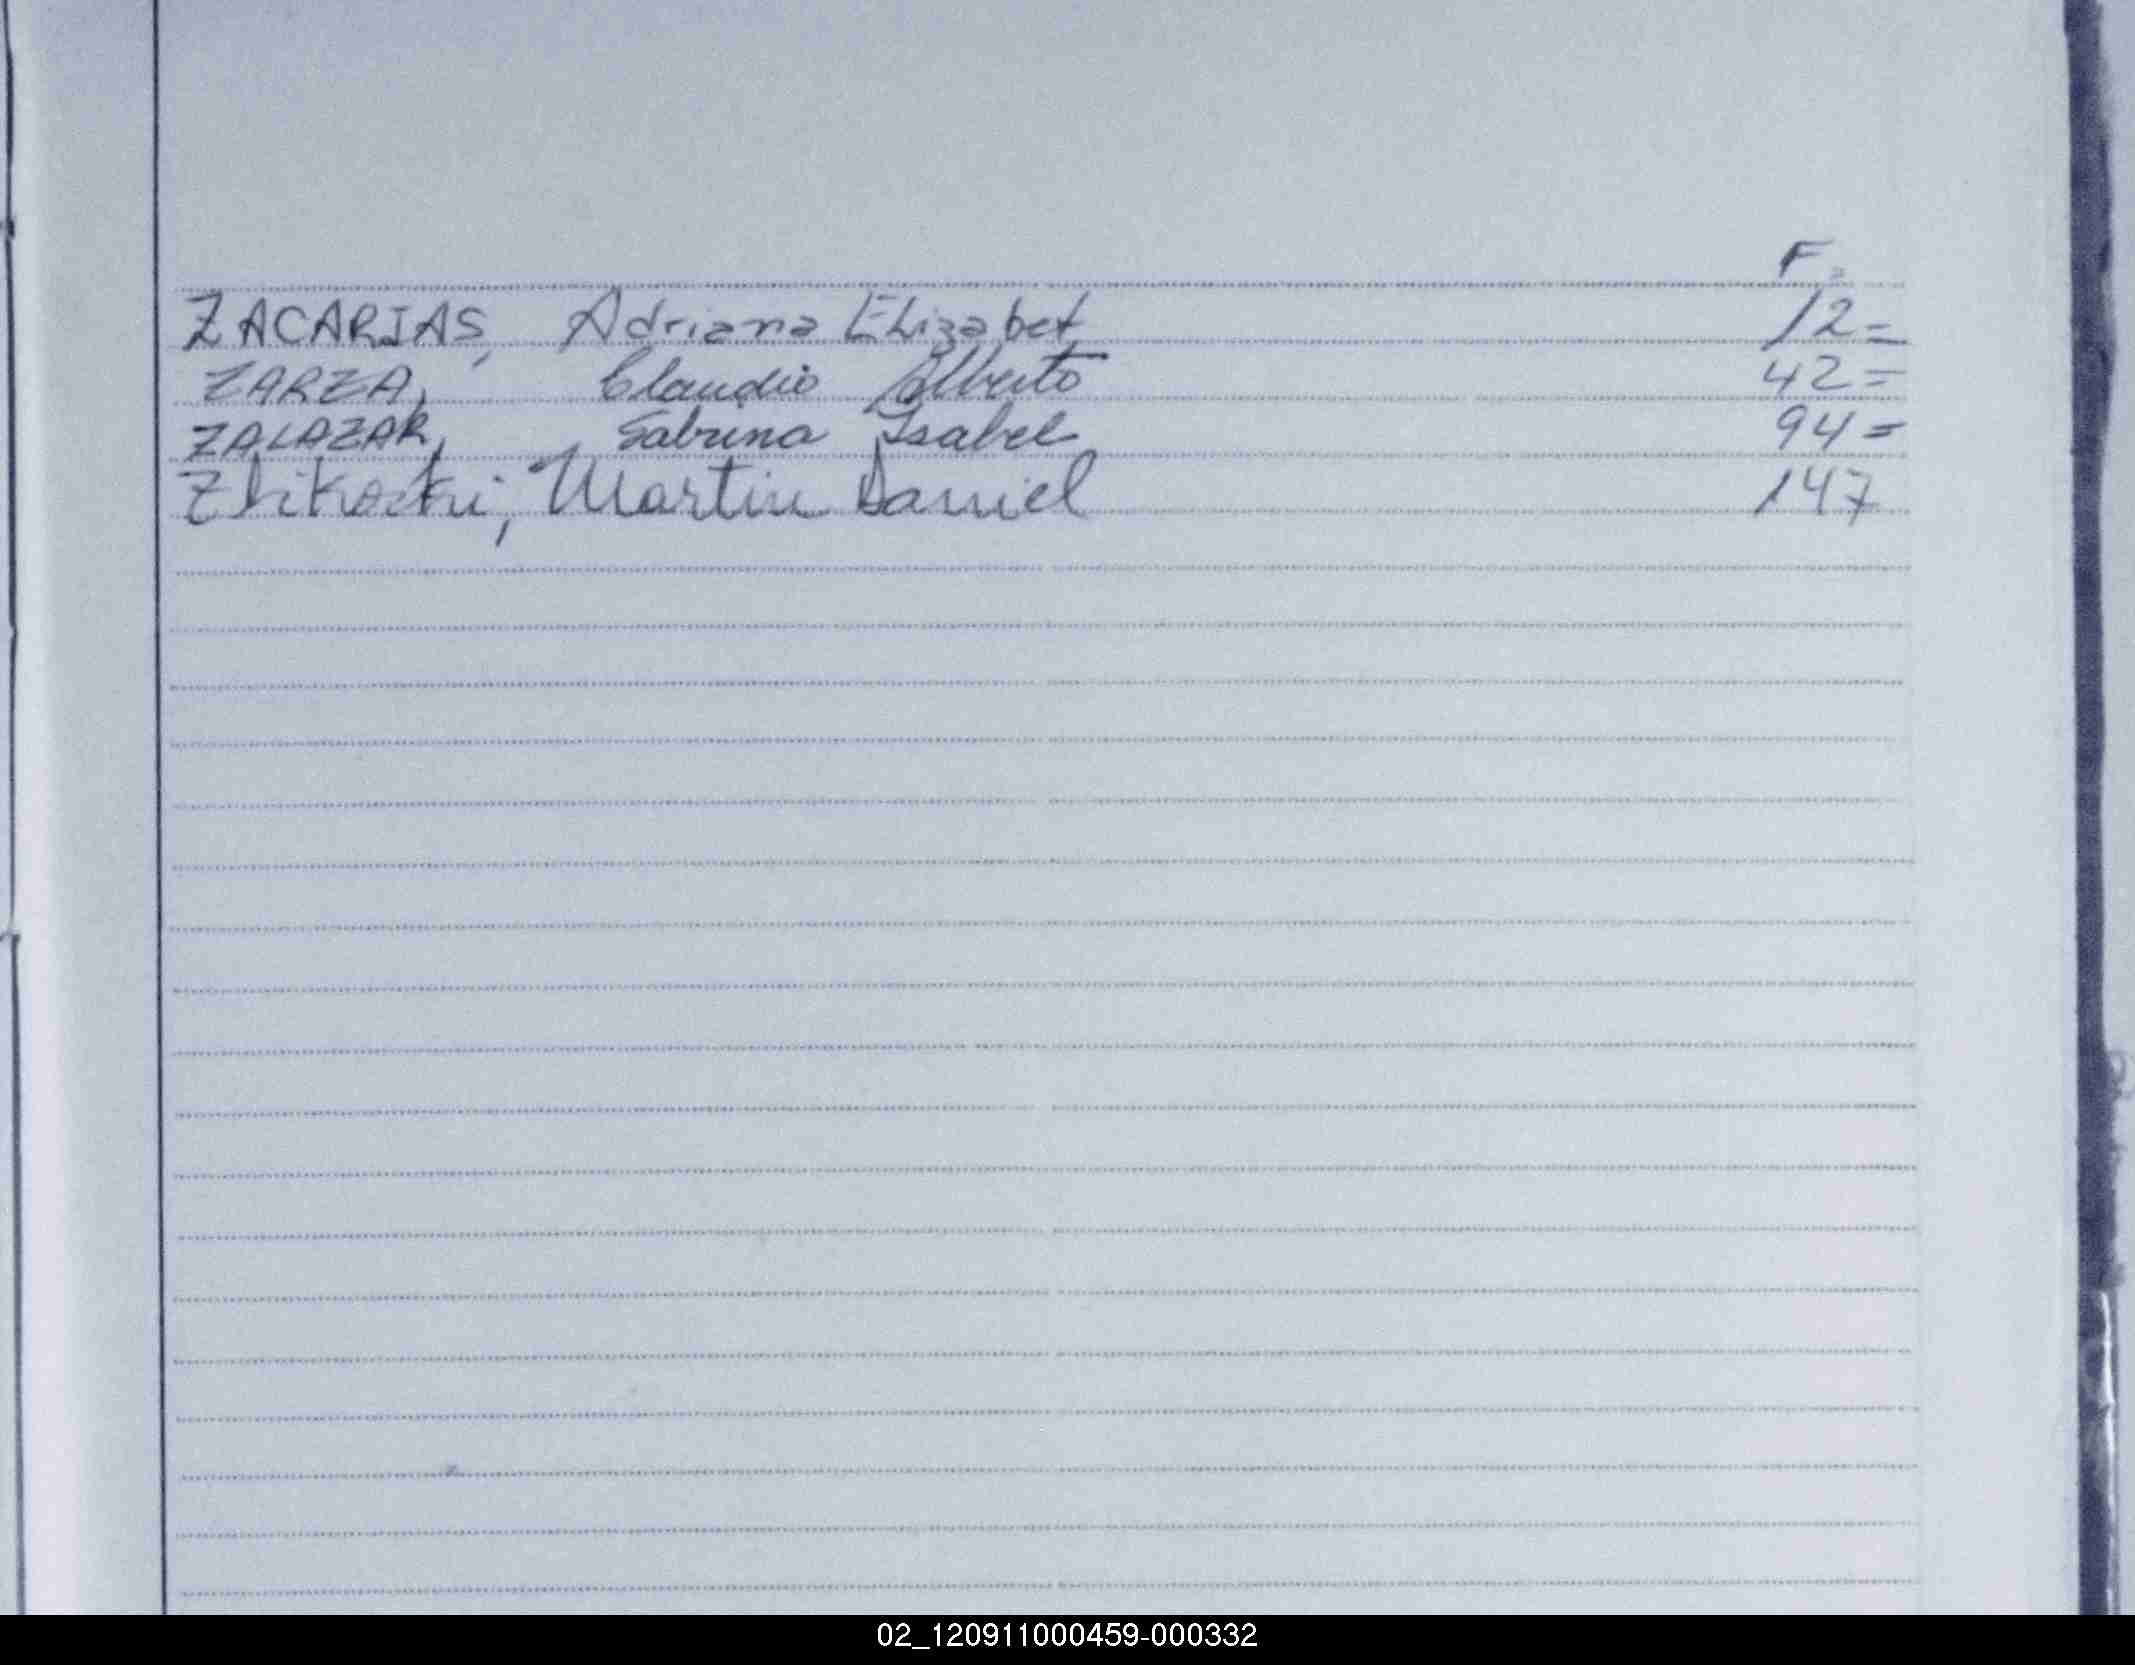 F.
ZACARIAS, Adriana Elizabet 12=
ZARZA, Claudio Alberto 42=
ZALAZAR, Sabrina Isabel 94=
Martin Daniel 147
02_120911000459-000332